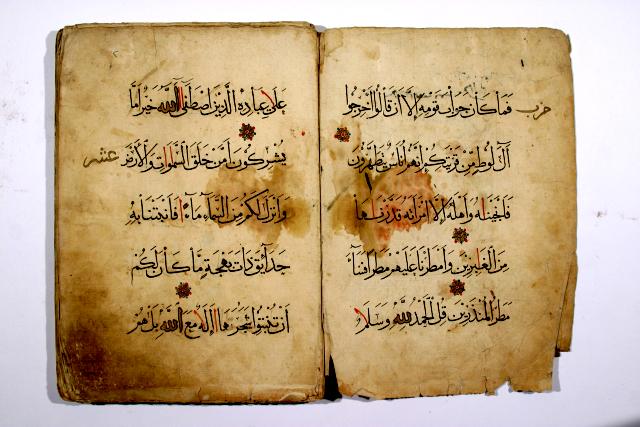 حزب
فما كان جواب قومه إلا أن قالوا أخرجوا
آل لوط من قريتكم إنهم أناس يتطهرون
فأنجيناه وأهله إلا امرأته قدرناها
من الغابرين وأمطرنا عليهم مطرا فساء
مطر المنذرين قل الحمد لله وسلام
على عباده الذين اصطفى آلله خير أما
يشركون أمن خلق السموات والأرض
عشر
وأنزل لكم من السماء ماء فأنبتنا به
حدائق ذات بهجة ما كان لكم
أن تنبتوا شجرها أإله مع الله بل هم